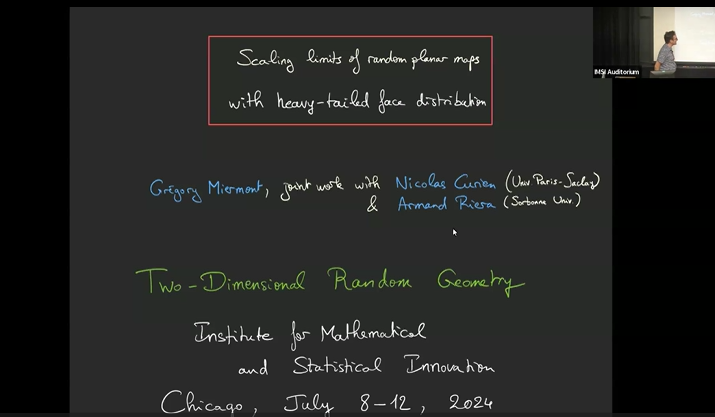 Scaling limits of random planar maps
with heavy-tailed face distribution
Grégory Miermont, joint work with Nicolas Curien (Univ. Paris-Saclay)
& Armand Riera (Sorbonne Univ.)
Two-Dimensional Random Geometry
Institute for Mathematical
and Statistical Innovation
Chicago, July 8-12, 2024
IMSI Auditorium